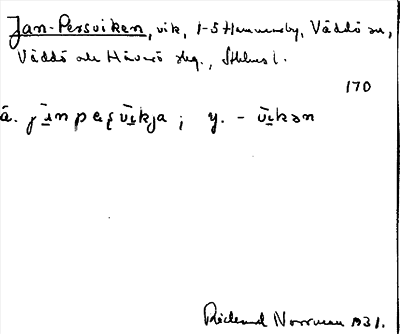 Jan-Persviken, vik, 1-5 Hammarby, Väddö sn,
Väddö och Häverö skg., Sthlms l.
170
ä. jɪ̄npeʂvɪ̄kja ; y. - vɪ̄kən
Rickard Norrman 1931.